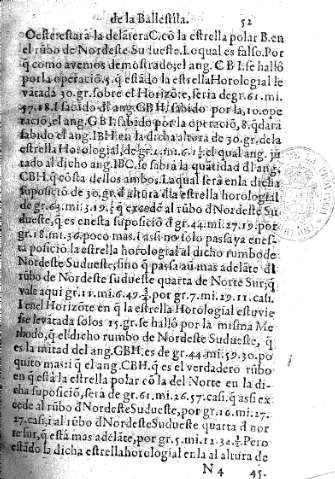 de la Ballestilla. 52
Oeste estará la delãtera C. cõ la estrella polar B. en
el rũbo de Nordeste Sudueste. Lo qual es falso. Por
q̃ como avemos demostrado, el ang. C B I. se halló
por la operaciõ, 5. q̃ estãdo la estrella Horologial le
vatada 30. gr. sobre el Horizõte, seria de gr. 61. mi.
57. 18. I sabido el ang. G B H. sabido por la, 10. ope
ració, el ang. G B I. sabido por la operació, 8. q̃dará
sabido el ang. I B H. en la dicha altura de 30. gr. de la
estrella Horologial, de gr. mi. el qual ang. jũ
tado al dicho ang. I B C. se sabra la quãtidad dl ang,
C B H. q̃ cõsta de los ambos. La qual será en la dicha
suposiciõ de 30. gr. d̃ altura dla estrella horologial
de gr. 64. mi. 3. 19. q̃ excede al rũbo d̃ Nordeste Su
dueste, q̃ es en esta suposició d̃ gr. 44. mi. 27. 19. por
gr. 18. mi. 36. poco mas. i asi no solo pasa ya en es-
ta posició la estrella horologial al dicho rumbo de
Nordeste Sudueste; sino q̃ pasa aũ mas adelãte dl
rũbo de Nordeste sudueste quarta de Norte Sur, q̃
vale aqui gr. 11. mi. 6. 49. 3/4 por gr. 7. mi. 29. 11. casi.
I en el Horizõte en q̃ la estrella Horologial estuvie
se levatada solos 15. gr. se halló por la misma Me
thodo, q̃ el dicho rumbo de Nordeste Sudueste, q̃
es la mitad del ang. G B H. es de gr. 44. mi. 59. 30. po
quito mas: i q̃ el ang. C B H. q̃ es el verdadero rũbo
en q̃ está la estrella polar cõ la del Norte en la di-
cha suposició, será de gr. 61. mi. 26. 57. casi. q̃ asi ex
cede al rũbo d̃ Nordeste Sudueste, por gr. 16. mi. 27.
27. casi, i al rũbo d̃ Nordeste Sudueste quarta d̃ nor
te sur, q̃ está mas adelãte, por gr. 5. mi. 12. 34. Pero
estãdo la dicha estrella horologial en la al altura de
N 4 45.